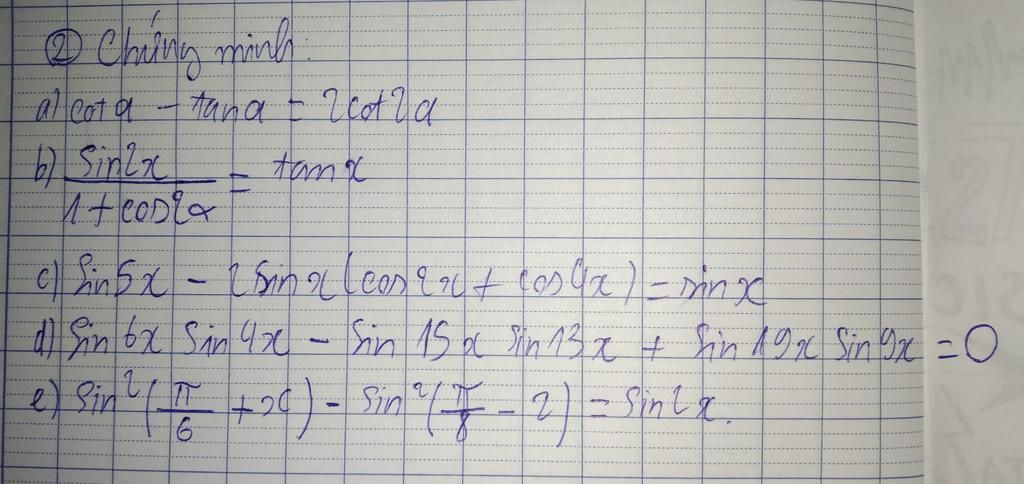 ② Chứng minh:
a) cot a - tan a = 2cot2a
b) sin2x / 1 + cos2x = tan x
c) Sin5x - 2sinx(cos2x + cos4x) = sinx
d) Sin6x Sin4x - Sin15x Sin13x + Sin19x Sin9x = 0
e) Sin²(π/6 + x) - Sin²(π/8 - 2) = Sin2x.